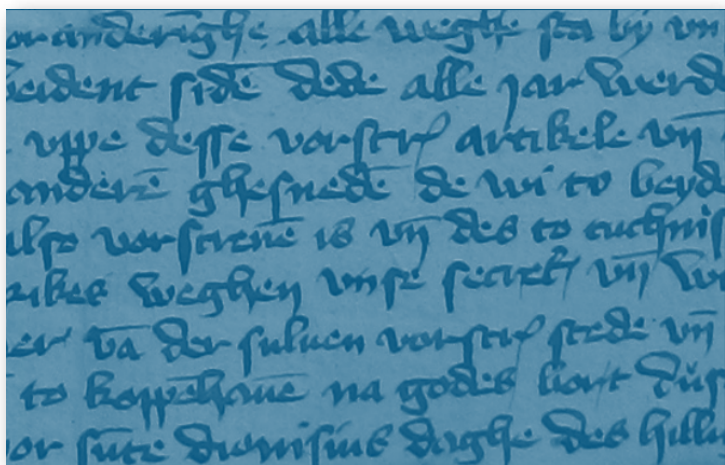 oranderīghe alle weghe sta by vn
beident sidē dede alle jar werde
vppe desse vorscrꝭ artikele vn̄
anderē ghesnedē de wi to beyd
also vorscreuē is vn̄ des to tuchnis
rikes weghen vnse secretꝭ vn̄ w
er vā der suluen vorscrꝭ stede vn̄
to koppēhauē na godes bort dus
or sūte dionisius daghe des hillı